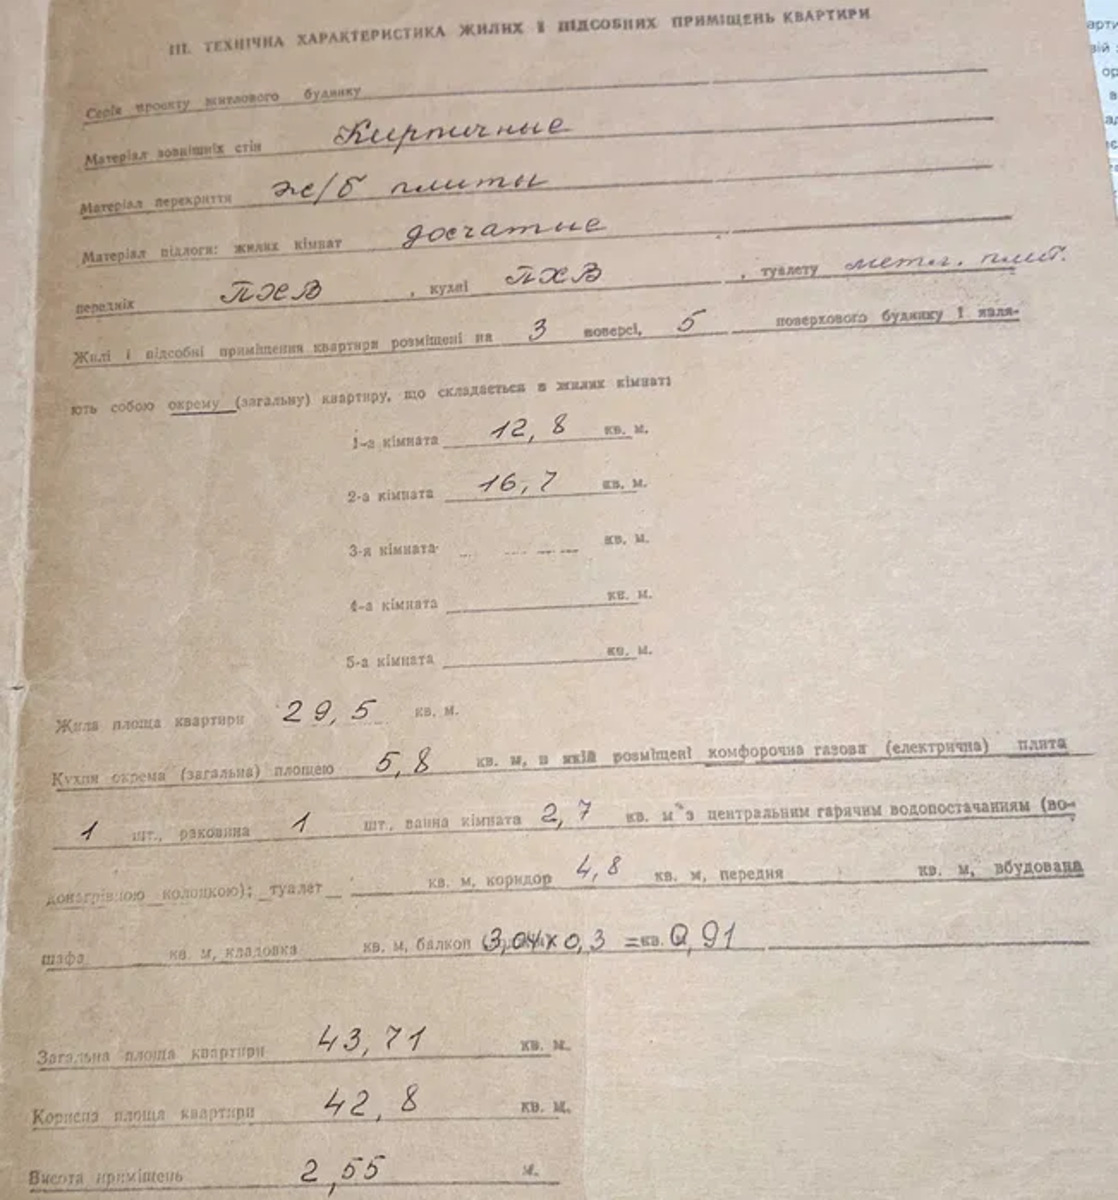 III. ТЕХНІЧНА ХАРАКТЕРИСТИКА ЖИЛИХ І ПІДСОБНИХ ПРИМІЩЕНЬ КВАРТИРИ
Серія проекту житлового будинку
Матеріал зовнішніх стін Кирпичные
Матеріал перекриття ж/б плиты
Матеріал підлоги: жилих кімнат досчатые
передніх ПХВ , кухні ПХВ , туалету метл. плит.
Жилі і підсобні приміщення квартири розміщені на 3 поверсі, 5 поверхового будинку і явля-
ють собою окрему (загальну) квартиру, що складається в жилих кімнат:
1-а кімната 12,8 кв. м.
2-а кімната 16,7 кв. м.
3-я кімната кв. м.
4-а кімната кв. м.
5-а кімната кв. м.
Жила площа квартири 29,5 кв. м.
Кухня окрема (загальна) площею 5,8 кв. м, в якій розміщені комфорочна газова (електрична) плита
1 шт., раковина 1 шт., ванна кімната 2,7 кв. м з центральним гарячим водопостачанням (во-
донагрівною колонкою); туалет кв. м, коридор 4,8 кв. м, передня кв. м, вбудована
шафа кв. м, кладовка кв. м, балкон 3,04х0,3 = кв. 0,91
Загальна площа квартири 43,71 кв. м.
Корисна площа квартири 42,8 кв. м.
Висота приміщень 2,55 м.